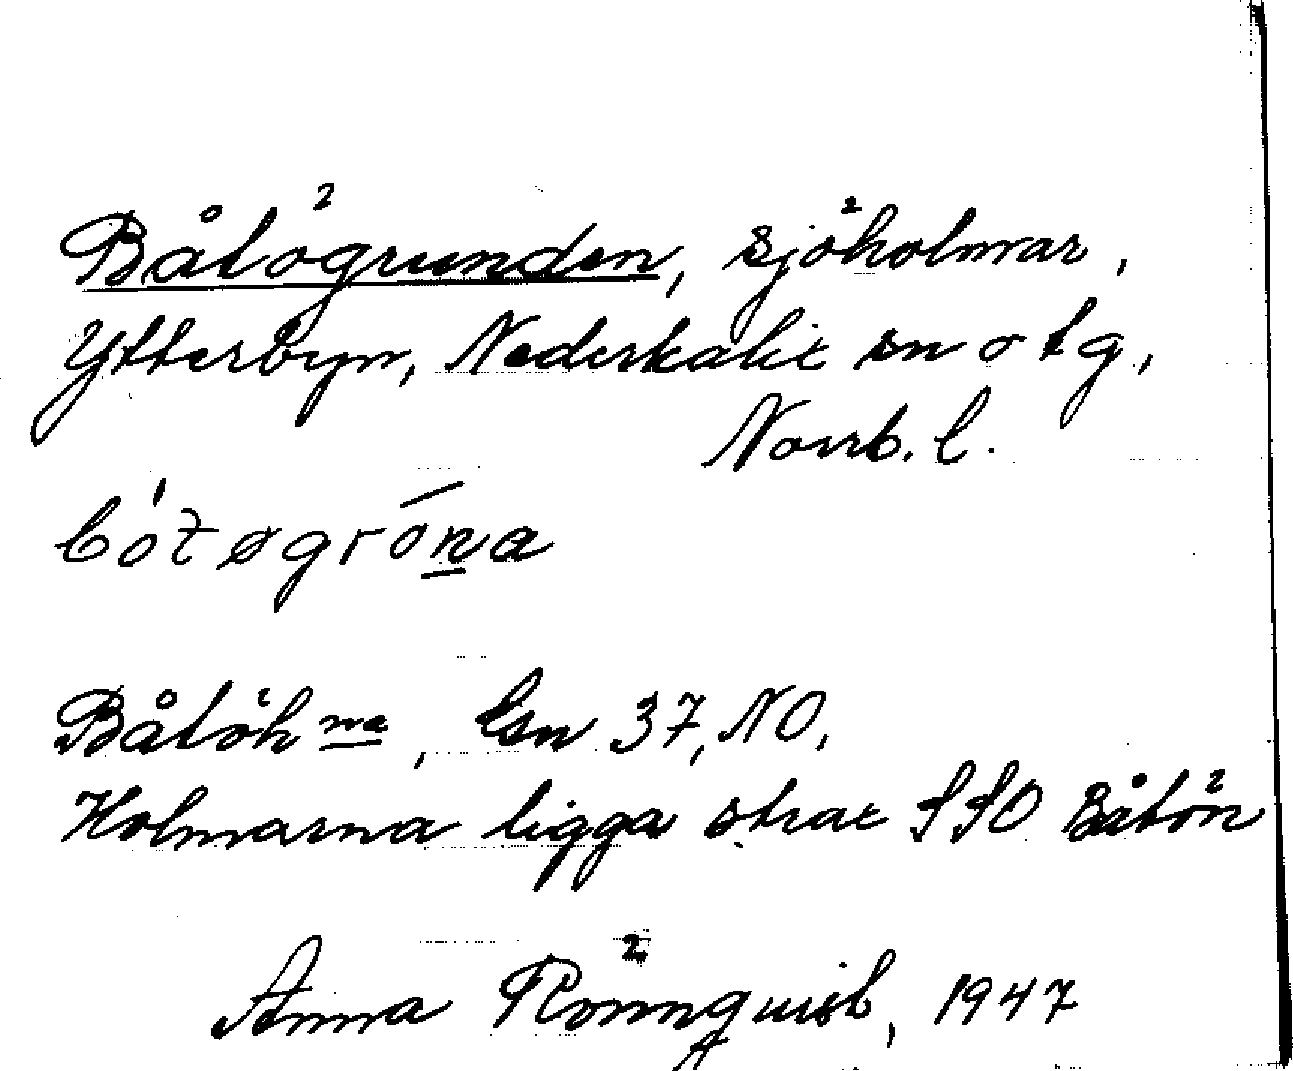 Båtögrunden, sjöholmar,
Ytterbyn, Nederkalix sn o tg,
Norrb. l.
bótøgróna
Båtöhna, Gsn 37, NO,
Holmarna ligga strax SSO Båtön
Anna Rönnquist, 1947